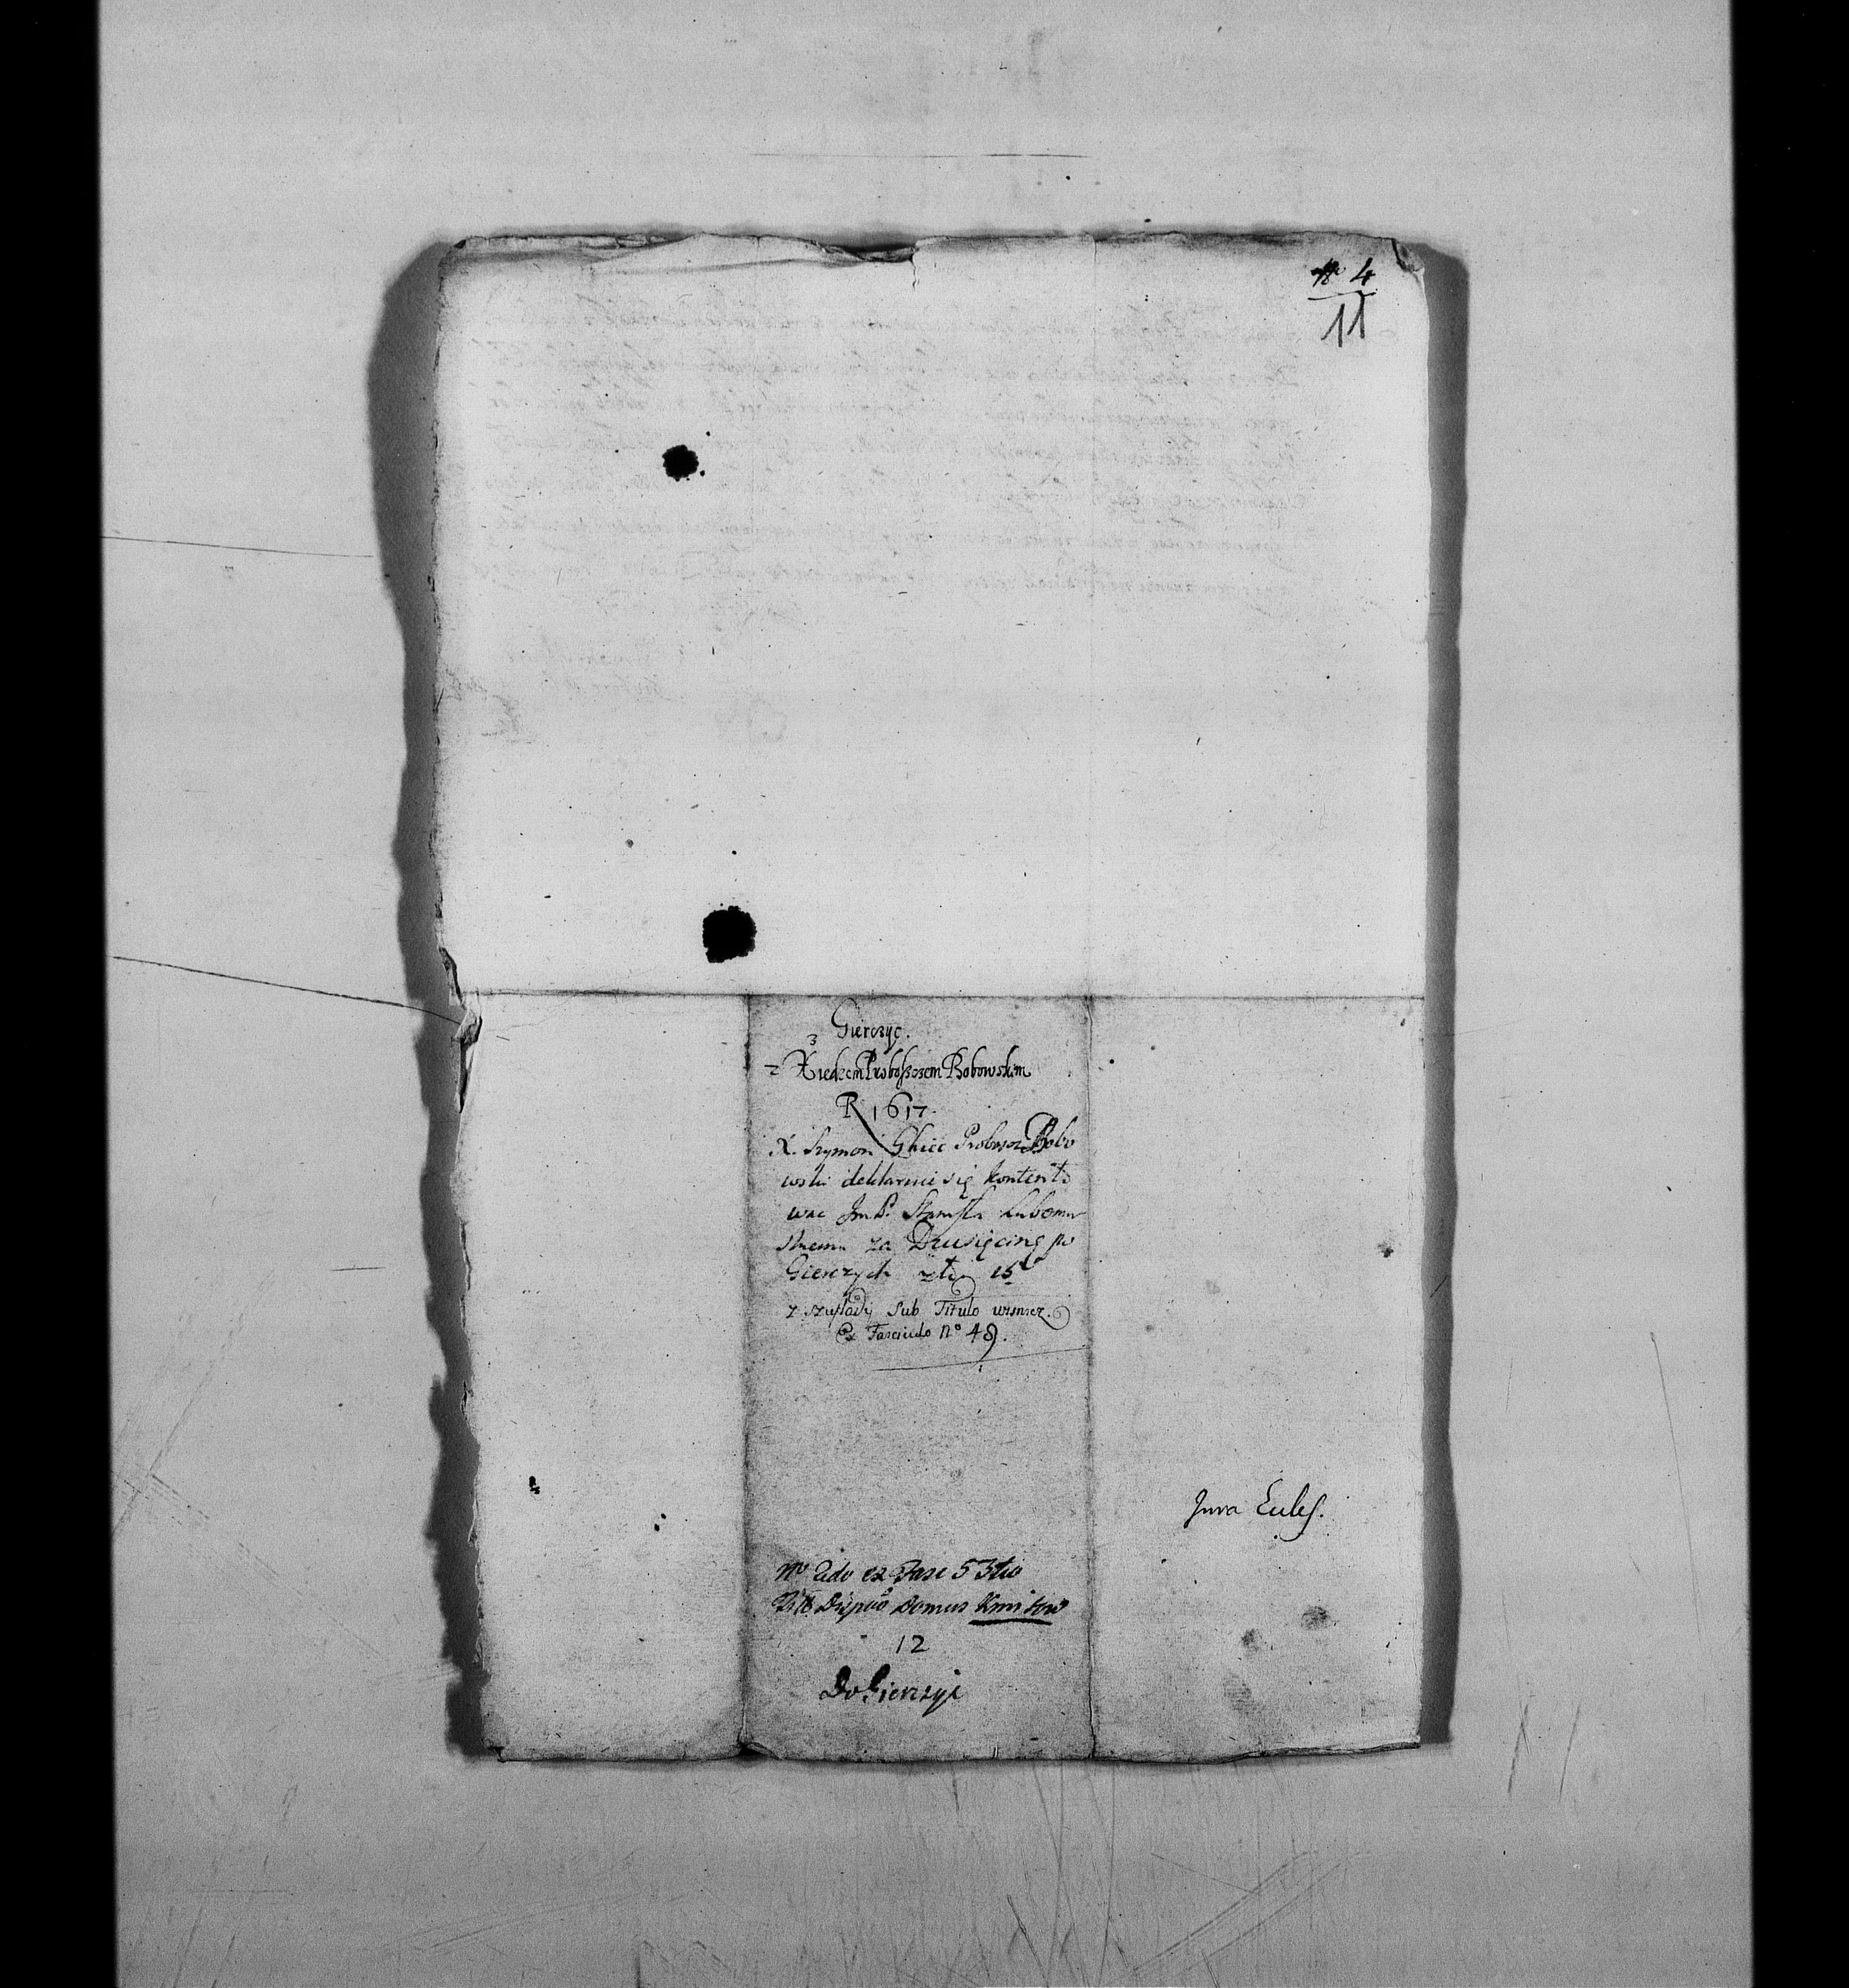 № 4
11
Gierczyc.
3
z Xiedzem Proboszczem Bobowskim
R 1617.
X. Szymon Proboszcz Bobo
wski deklaruie się kontento
wac Jm P. Stanisła Lubomir
skiemu za Dziesięcinę w
Gierczych zł. 15
z szuflady Sub Titulo wisnicz.
Ex Fasciculo No 49.
Jura Eccles.
No 2do ex Fasc 5 3tio
Domus Kmitow
12
Do Gierczyc